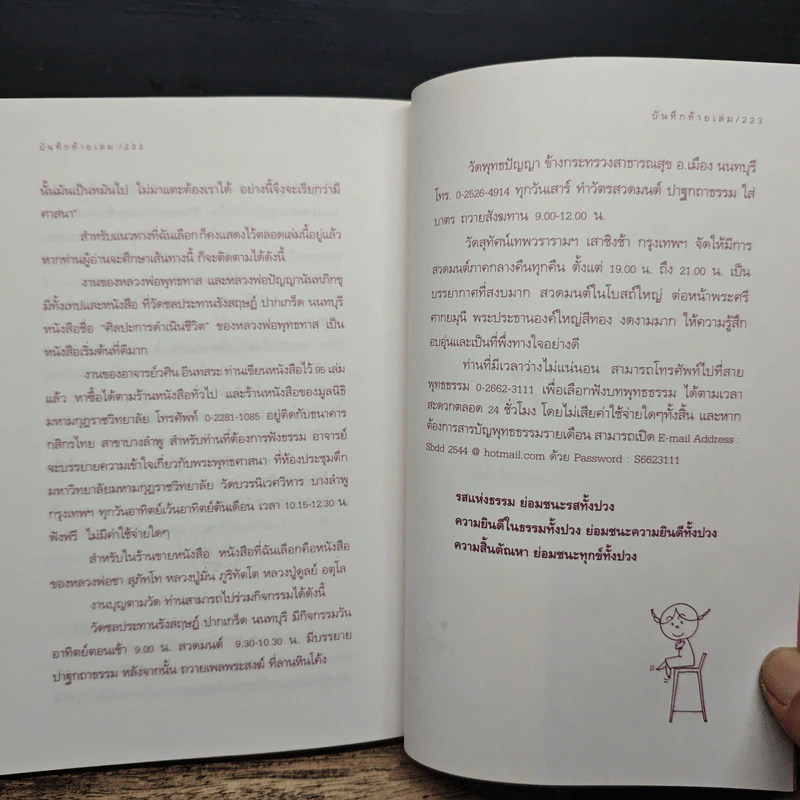 บันทึกท้ายเล่ม/222
นั้นมันเป็นหมันไป ไม่มาแตะต้องเราได้ อย่างนี้จึงจะเรียกว่ามี
ศาสนา"
สำหรับแนวทางที่ฉันเลือกก็คงแสดงไว้ตลอดเล่มนี้อยู่แล้ว
หากท่านผู้อ่านจะศึกษาเส้นทางนี้ ก็จะติดตามได้ดังนี้
งานของหลวงพ่อพุทธทาส และหลวงพ่อปัญญานันทภิกขุ
มีทั้งเทปและหนังสือ ที่วัดชลประทานรังสฤษฎ์ ปากเกร็ด นนทบุรี
หนังสือชื่อ "ศิลปะการดำเนินชีวิต" ของหลวงพ่อพุทธทาส เป็น
หนังสือเริ่มต้นที่ดีมาก
งานของอาจารย์วศิน อินทสระ ท่านเขียนหนังสือไว้ 95 เล่ม
แล้ว หาซื้อได้ตามร้านหนังสือทั่วไป และร้านหนังสือของมูลนิธิ
มหามกุฏราชวิทยาลัย โทรศัพท์ 0-2281-1085 อยู่ติดกับธนาคาร
กสิกรไทย สาขาบางลำพู สำหรับท่านที่ต้องการฟังธรรม อาจารย์
จะบรรยายความเข้าใจเกี่ยวกับพระพุทธศาสนา ที่ห้องประชุมตึก
มหาวิทยาลัยมหามกุฏราชวิทยาลัย วัดบวรนิเวศวิหาร บางลำพู
กรุงเทพฯ ทุกวันอาทิตย์เว้นอาทิตย์ต้นเดือน เวลา 10.15-12.30 น.
ฟังฟรี ไม่มีค่าใช้จ่ายใดๆ
สำหรับในร้านขายหนังสือ หนังสือที่ฉันเลือกคือหนังสือ
ของหลวงพ่อชา สุภัทโท หลวงปู่มั่น ภูริทัตโต หลวงปู่ดูลย์ อตุโล
งานบุญตามวัด ท่านสามารถไปร่วมกิจกรรมได้ดังนี้
วัดชลประทานรังสฤษฎ์ ปากเกร็ด นนทบุรี มีกิจกรรมวัน
อาทิตย์ตอนเช้า 9.00 น. สวดมนต์ 9.30-10.30 น. มีบรรยาย
ปาฐกถาธรรม หลังจากนั้น ถวายเพลพระสงฆ์ ที่ลานหินโค้ง
บันทึกท้ายเล่ม/223
วัดพุทธปัญญา ข้างกระทรวงสาธารณสุข อ.เมือง นนทบุรี
โทร. 0-2526-4914 ทุกวันเสาร์ ทำวัตรสวดมนต์ ปาฐกถาธรรม ใส่
บาตร ถวายสังฆทาน 9.00-12.00 น.
วัดสุทัศน์เทพวรารามฯ เสาชิงช้า กรุงเทพฯ จัดให้มีการ
สวดมนต์ภาคกลางคืนทุกคืน ตั้งแต่ 19.00 น. ถึง 21.00 น. เป็น
บรรยากาศที่สงบมาก สวดมนต์ในโบสถ์ใหญ่ ต่อหน้าพระศรี
ศากยมุนี พระประธานองค์ใหญ่สีทอง งดงามมาก ให้ความรู้สึก
อบอุ่นและเป็นที่พึ่งทางใจอย่างดี
ท่านที่มีเวลาว่างไม่แน่นอน สามารถโทรศัพท์ไปที่สาย
พุทธธรรม 0-2662-3111 เพื่อเลือกฟังบทพุทธธรรม ได้ตามเวลา
สะดวกตลอด 24 ชั่วโมง โดยไม่เสียค่าใช้จ่ายใดๆทั้งสิ้น และหาก
ต้องการสารบัญพุทธธรรมรายเดือน สามารถเปิด E-mail Address :
Sbdd 2544 @ hotmail.com ด้วย Password : S6623111
รสแห่งธรรม ย่อมชนะรสทั้งปวง
ความยินดีในธรรมทั้งปวง ย่อมชนะความยินดีทั้งปวง
ความสิ้นตัณหา ย่อมชนะทุกข์ทั้งปวง